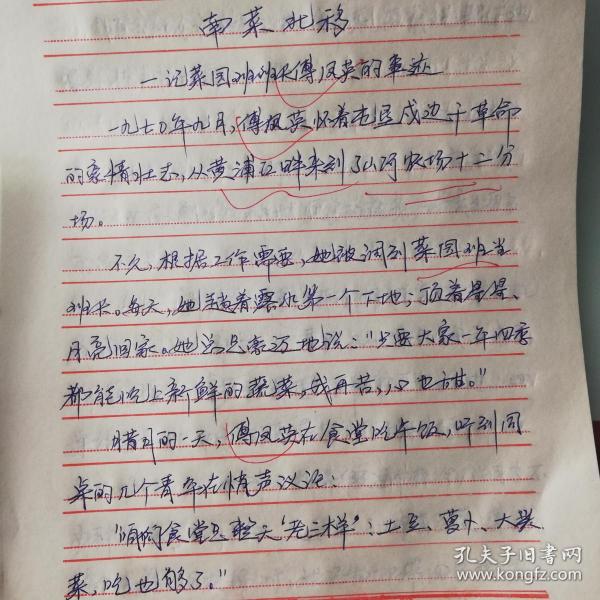 南菜北移
—记菜园班班长傅凤英的事迹
一九七〇年九月，傅凤英怀着屯垦戍边干革命
的豪情壮志，从黄浦江畔来到了山河农场十二分
场。
不久，根据工作需要，她被调到菜园班当
班长。每天，她趟着露水第一个下地；顶着星星、
月亮回家。她总是豪迈地说："只要大家一年四季
都能吃上新鲜的蔬菜，我再苦，心也甜。"
腊月的一天，傅凤英在食堂吃午饭，听到同
桌的几个青年在悄声议论：
"咱们食堂总整天'老三样'：土豆、萝卜、大头
菜，吃也够了。"
孔夫子旧书网
www.kongfz.com